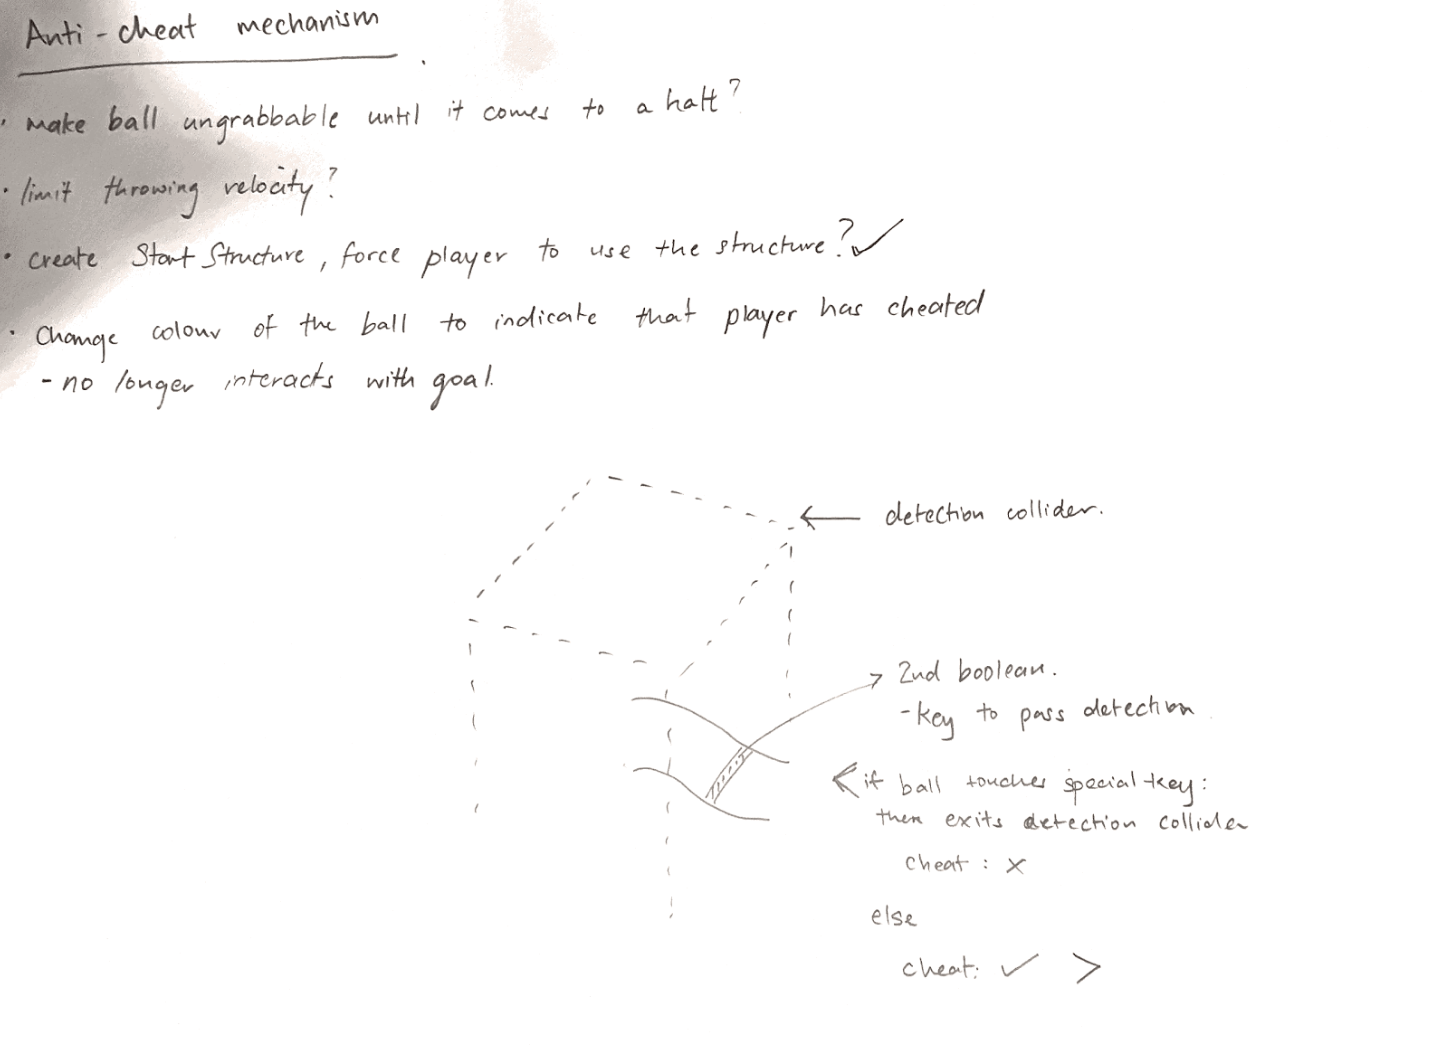 Anti-cheat mechanism
· make ball ungrabbable until it comes to a halt?
· limit throwing velocity?
· create Start Structure, force player to use the structure? ✓
· Change colour of the ball to indicate that player has cheated
- no longer interacts with goal.
← detection collider.
2nd boolean.
- key to pass detection
< if ball touches special key:
then exits detection collider
cheat : x
else
cheat: ✓ >